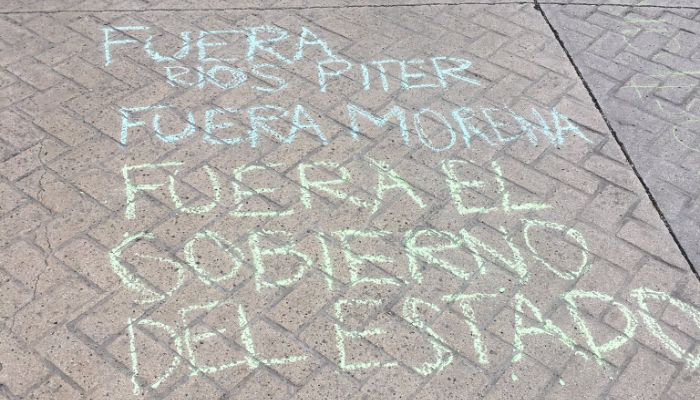 FUERA
RIOS PITER
FUERA MORENA
FUERA EL
GOBIERNO
DEL ESTADO